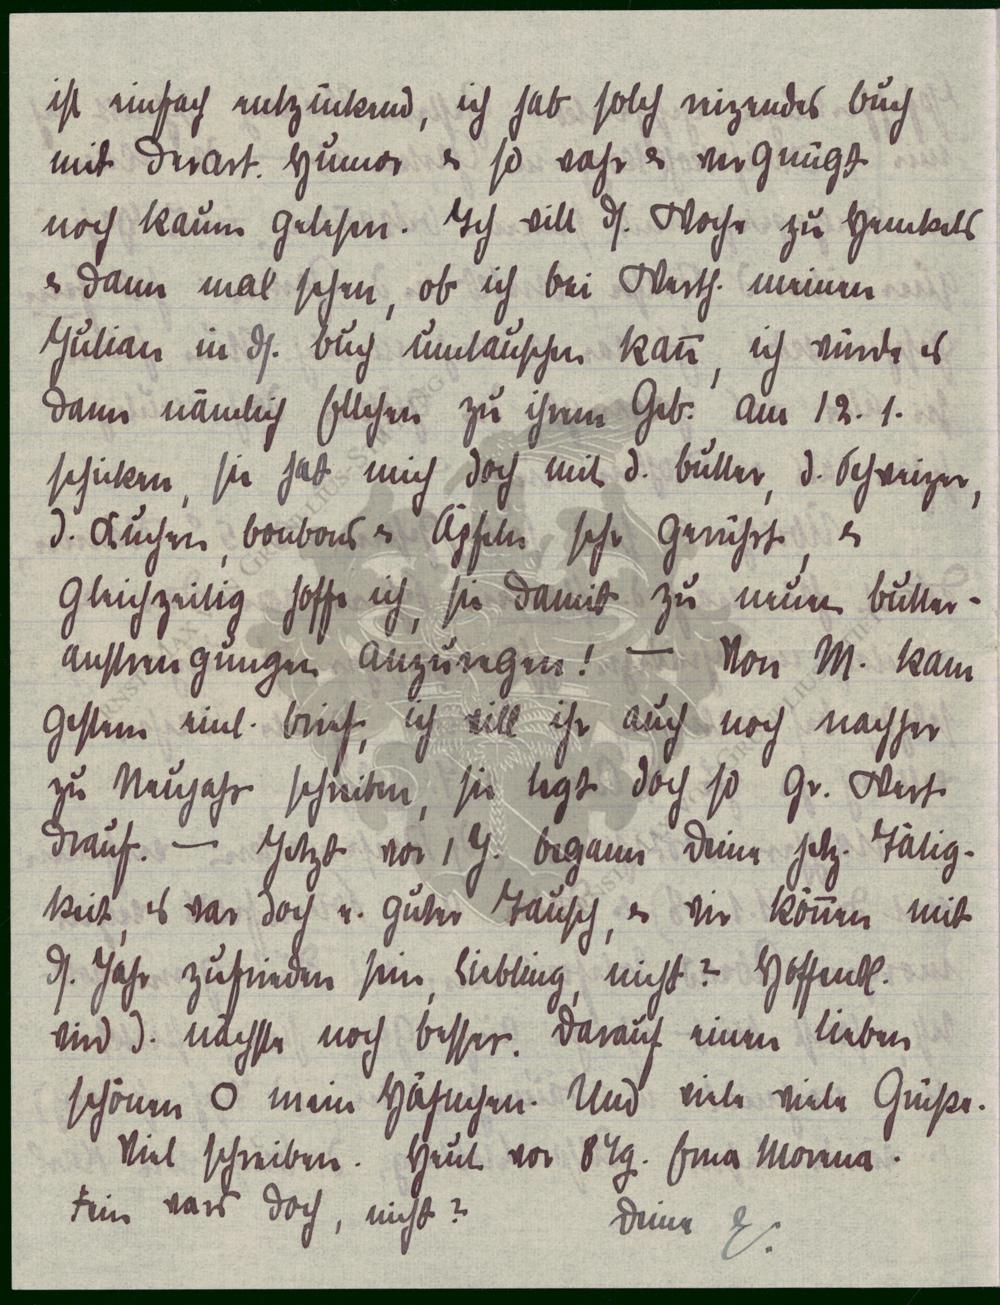 ist einfach entzückend, ich hab solch reizendes Buch
mit derart. Humor & so wahr & vergnügt
noch kaum gelesen. Ich will ds. Woche zu Henckels
& dann mal sehen, ob ich bei Werth. meinen
Julian in ds. Buch umtauschen kañ, ich würde es
dann nämlich Ellchen zu ihrem Geb. am 12. 1.
schicken, sie hat mich doch mit d. Butter, d. Schweizer,
d. Kuchen, Bonbons & Äpfeln sehr gerührt, &
gleichzeitig hoffe ich, sie damit zu neuen Butter-
anstrengungen anzuregen! — Von M. kam
gestern einl. Brief, ich will ihr auch noch nachher
zu Neujahr schreiben, sie legt doch so gr. Wert
drauf. — Jetzt vor 1 J. begann Deine jetz. Tätig-
keit, es war doch e. guter Tausch, & wir köñen mit
ds. Jahr zufrieden sein, Liebling, nicht? Hoffentl.
wird d. nächste noch besser. Darauf einen lieben
schönen O mein Häschen. Und viele viele Grüße.
Viel schreiben. Heut vor 8 Tg. Ema Morena.
Fein wars doch, nicht? Deine E.